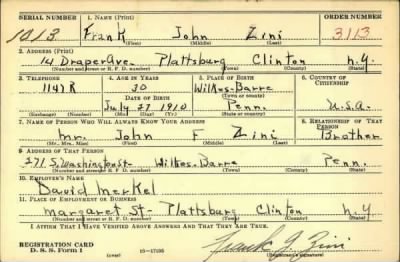 SERIAL NUMBER 1. NAME (Print) ORDER NUMBER
1013 Frank John Zini 3113
(First) (Middle) (Last)
2. ADDRESS (Print)
14 Draper Ave. Plattsburg Clinton N.Y.
(Number and street or R. F. D. number) (Town) (County) (State)
3. TELEPHONE 4. AGE IN YEARS 5. PLACE OF BIRTH 6. COUNTRY OF CITIZENSHIP
1147R 30 Wilkes-Barre
DATE OF BIRTH (Town or county)
July 27 1910 Penn. U.S.A.
(Exchange) (Number) (Mo.) (Day) (Yr.) (State or country)
7. NAME OF PERSON WHO WILL ALWAYS KNOW YOUR ADDRESS 8. RELATIONSHIP OF THAT PERSON
Mr. John F Zini Brother
(Mr., Mrs., Miss) (First) (Middle) (Last)
9. ADDRESS OF THAT PERSON
271 S. Washington St- Wilkes-Barre Penn.
(Number and street or R. F. D. number) (Town) (County) (State)
10. EMPLOYER'S NAME
David Merkel
11. PLACE OF EMPLOYMENT OR BUSINESS
Margaret St- Plattsburg Clinton N.Y
(Number and street or R. F. D. number) (Town) (County) (State)
I AFFIRM THAT I HAVE VERIFIED ABOVE ANSWERS AND THAT THEY ARE TRUE.
REGISTRATION CARD
D. S. S. Form 1 (over) 16-17105 Frank J. Zini
(Registrant's signature)